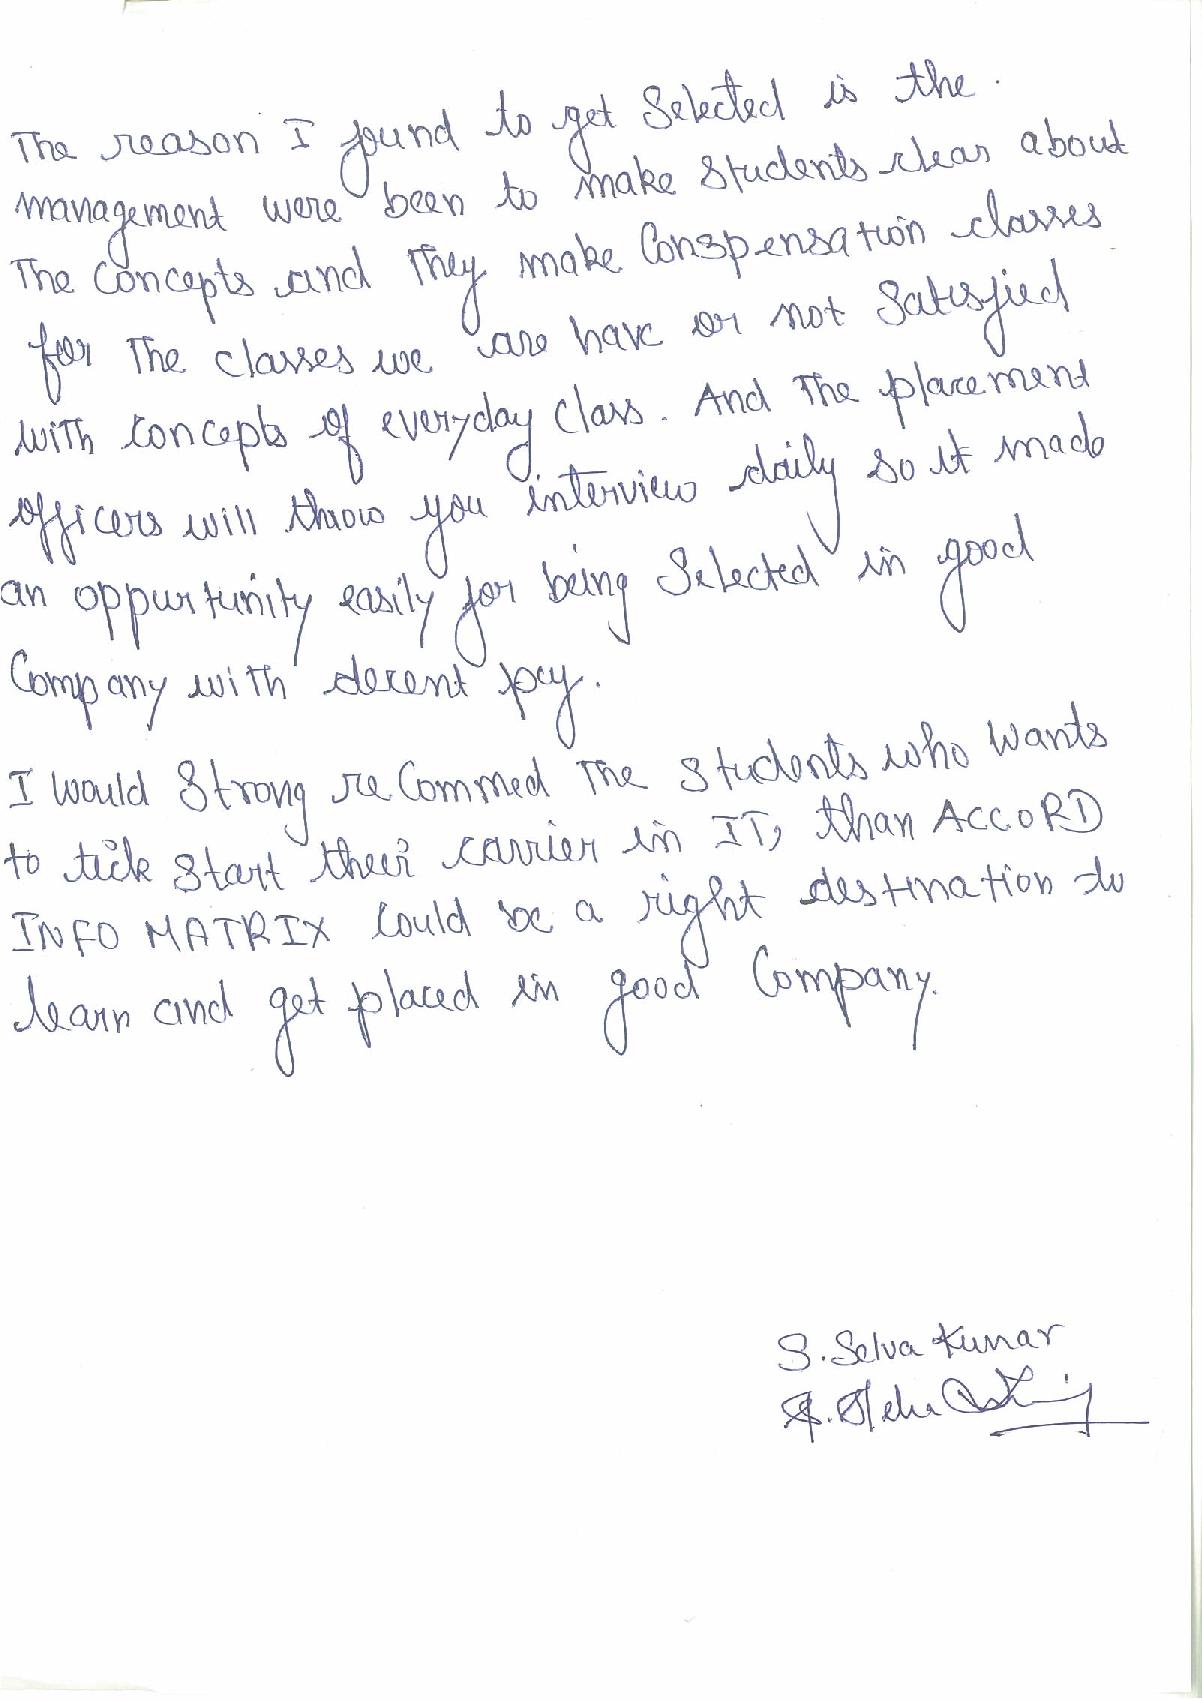 The reason I found to get Selected is the.
management were been to make students clear about
The Concepts and They make Conspensation classes
for The classes we are have or not Satisfied
with concepts of everyday class. And The placement
officers will throw you interview daily so it made
an oppurtunity easily for being Selected in good
Company with decent pay.
I would Strong recommed The students who wants
to tick start their carrier in IT, than ACCORD
INFO MATRIX could be a right destination to
learn and get placed in good Company.
S. Selva Kumar